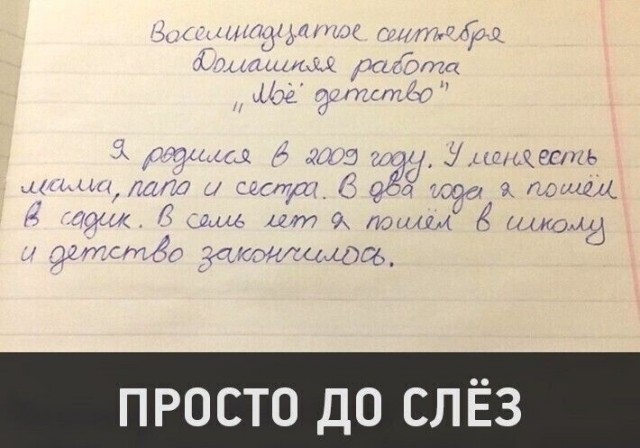 Восемнадцатое сентября
Домашняя работа
„Моё детство"
Я родился в 2009 году. У меня есть
мама, папа и сестра. В два года я пошёл
в садик. В семь лет я пошёл в школу
и детство закончилось.
ПРОСТО ДО СЛЁЗ